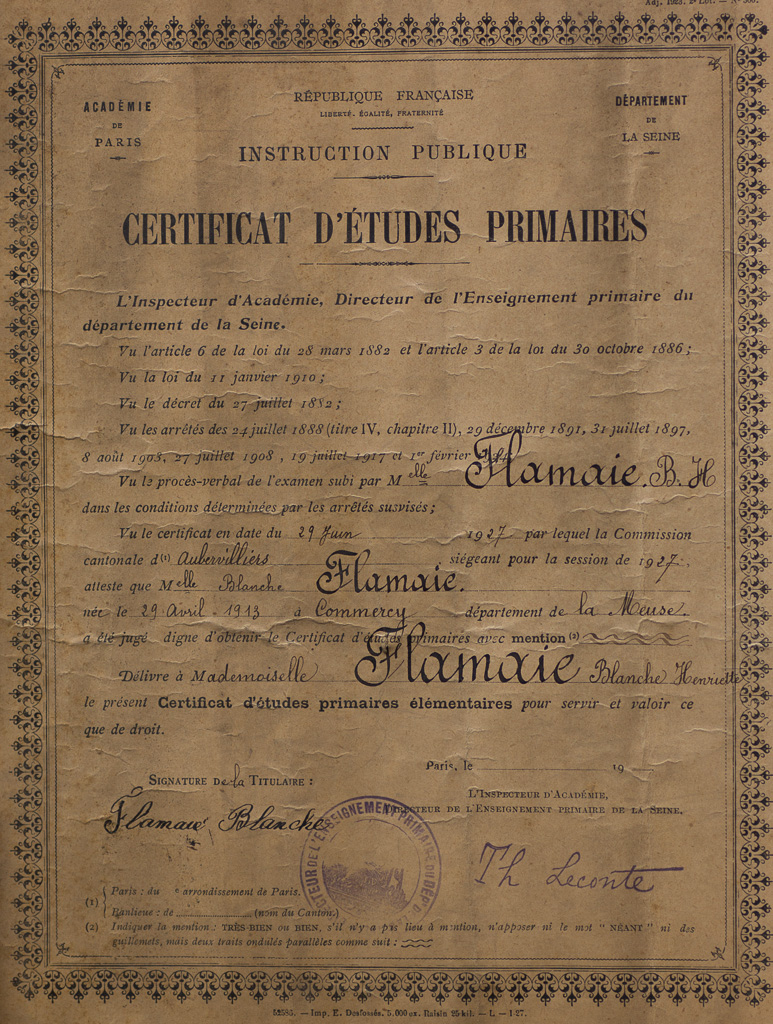 Adj. 1923. 2e Lot. — No 300.
ACADÉMIE
DE
PARIS
RÉPUBLIQUE FRANÇAISE
LIBERTÉ. ÉGALITÉ, FRATERNITÉ
INSTRUCTION PUBLIQUE
DÉPARTEMENT
DE
LA SEINE
CERTIFICAT D'ÉTUDES PRIMAIRES
L'Inspecteur d'Académie, Directeur de l'Enseignement primaire du
département de la Seine.
Vu l'article 6 de la loi du 28 mars 1882 et l'article 3 de la loi du 30 octobre 1886;
Vu la loi du 11 janvier 1910;
Vu le décret du 27 juillet 1882;
Vu les arrêtés des 24 juillet 1888 (titre IV, chapitre II), 29 décembre 1891, 31 juillet 1897,
8 août 1903, 27 juillet 1908, 19 juillet 1917 et 1er février
Vu le procès-verbal de l'examen subi par Melle Flamaie. B. H
dans les conditions déterminées par les arrêtés susvisés;
Vu le certificat en date du 29 Juin 1927 par lequel la Commission
cantonale d(1) Aubervilliers siégeant pour la session de 1927,
atteste que Melle Blanche Flamaie.
née le 29 Avril 1913 à Commercy département de la Meuse.
a été jugé digne d'obtenir le Certificat d'études primaires avec mention(2)
Délivré à Mademoiselle Flamaie Blanche Henriette
le présent Certificat d'études primaires élémentaires pour servir et valoir ce
que de droit.
Paris, le 19
SIGNATURE de la TITULAIRE :
L'INSPECTEUR D'ACADÉMIE,
DIRECTEUR DE L'ENSEIGNEMENT PRIMAIRE DE LA SEINE,
Flamaie Blanche
Th Leconte
DIRECTEUR DE L'ENSEIGNEMENT PRIMAIRE DU DÉP.
(1) Paris : du e arrondissement de Paris.
Banlieue : de (nom du Canton.)
(2) Indiquer la mention : TRÈS-BIEN ou BIEN, s'il n'y a pas lieu à mention, n'apposer ni le mot "NÉANT" ni des
guillemets, mais deux traits ondulés parallèles comme suit :
52585. — Imp. E. Desfossés. 5.000 ex. Raisin 25 kil. — L — 1-27.